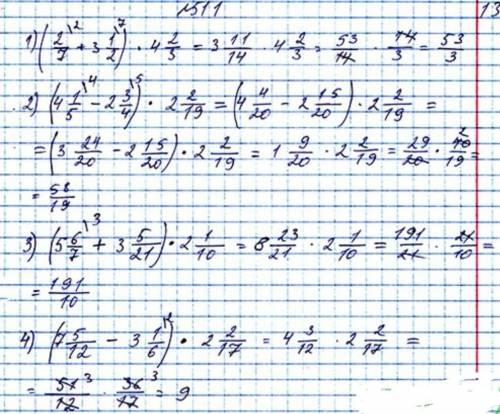 №511 13
1) (2/7\2 + 3 1/2\7) · 4 2/3 = 3 11/14 · 4 2/3 = 53/14 · 14/3 = 53/3
2) (4 1/5\4 - 2 3/4\5) · 2 2/19 = (4 4/20 - 2 15/20) · 2 2/19 =
= (3 24/20 - 2 15/20) · 2 2/19 = 1 9/20 · 2 2/19 = 29/20 · 40/19 2 =
= 58/19
3) (5 6/7\3 + 3 5/21) · 2 1/10 = 8 23/21 · 2 1/10 = 191/21 · 21/10 =
= 191/10
4) (7 5/12 - 3 1/6\2) · 2 2/17 = 4 3/12 · 2 2/17 =
= 51/12 3 · 36/17 3 = 9